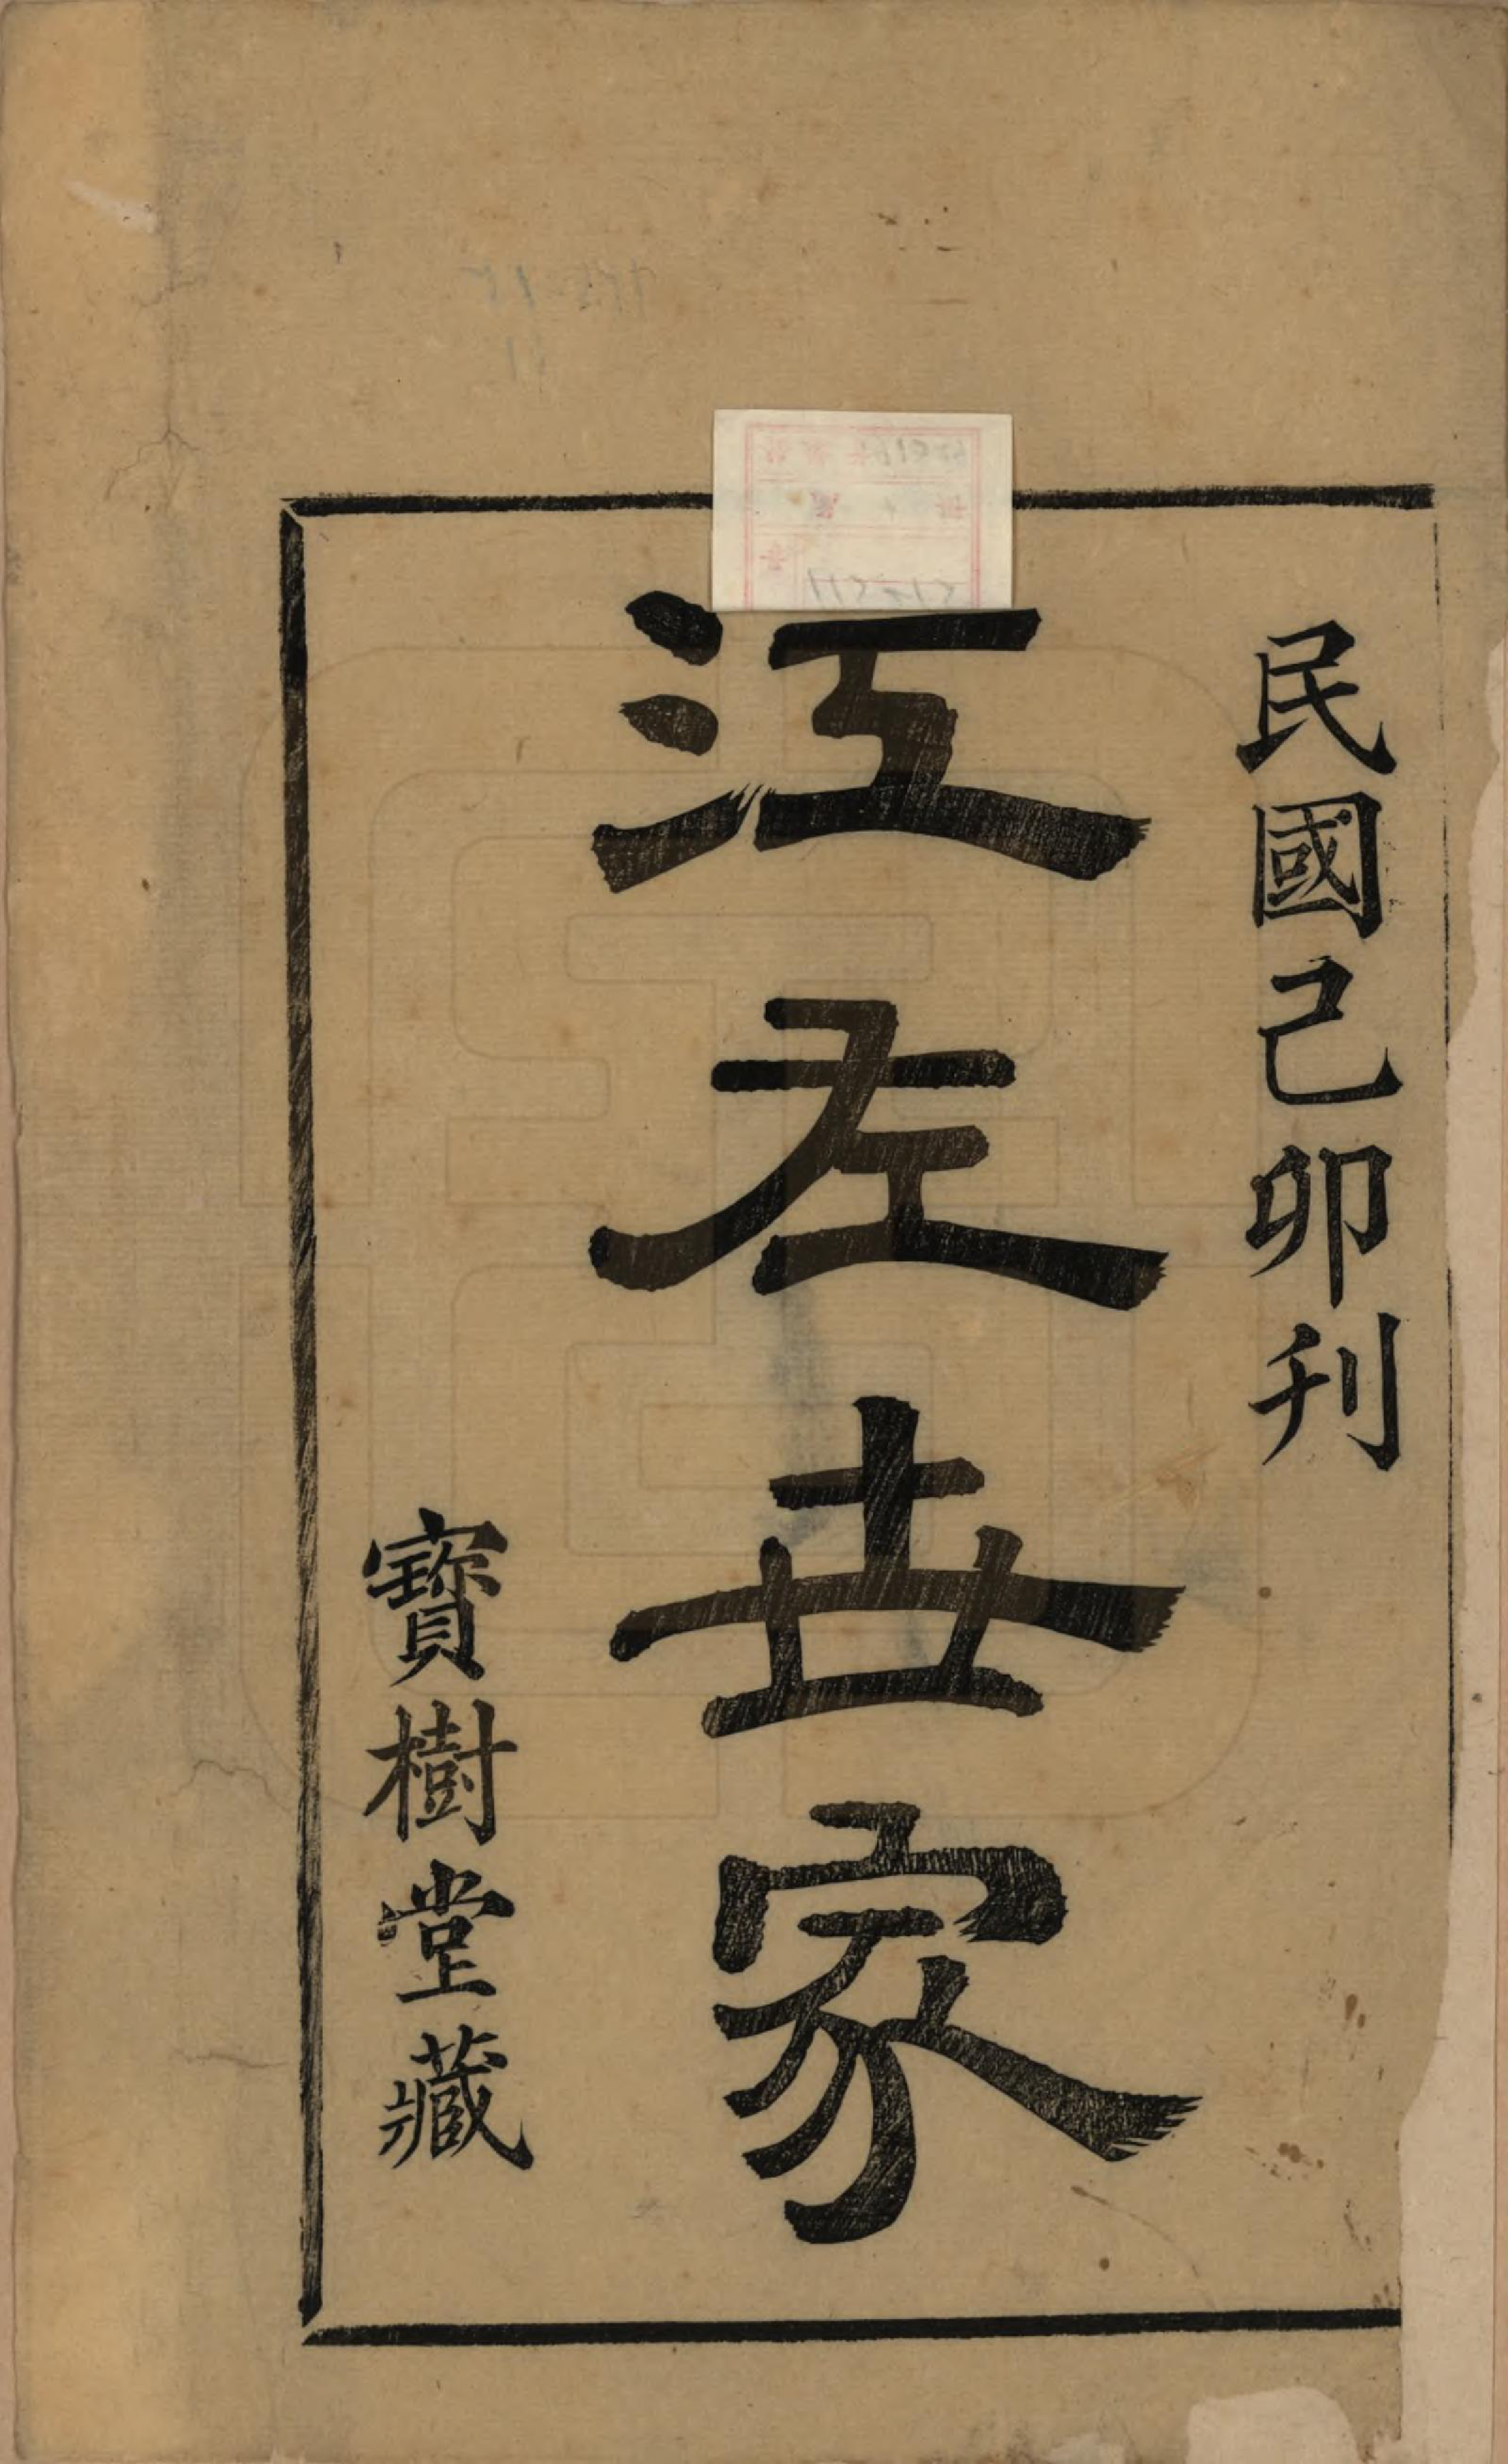 民國己卯刊
江左世家
寶樹堂藏